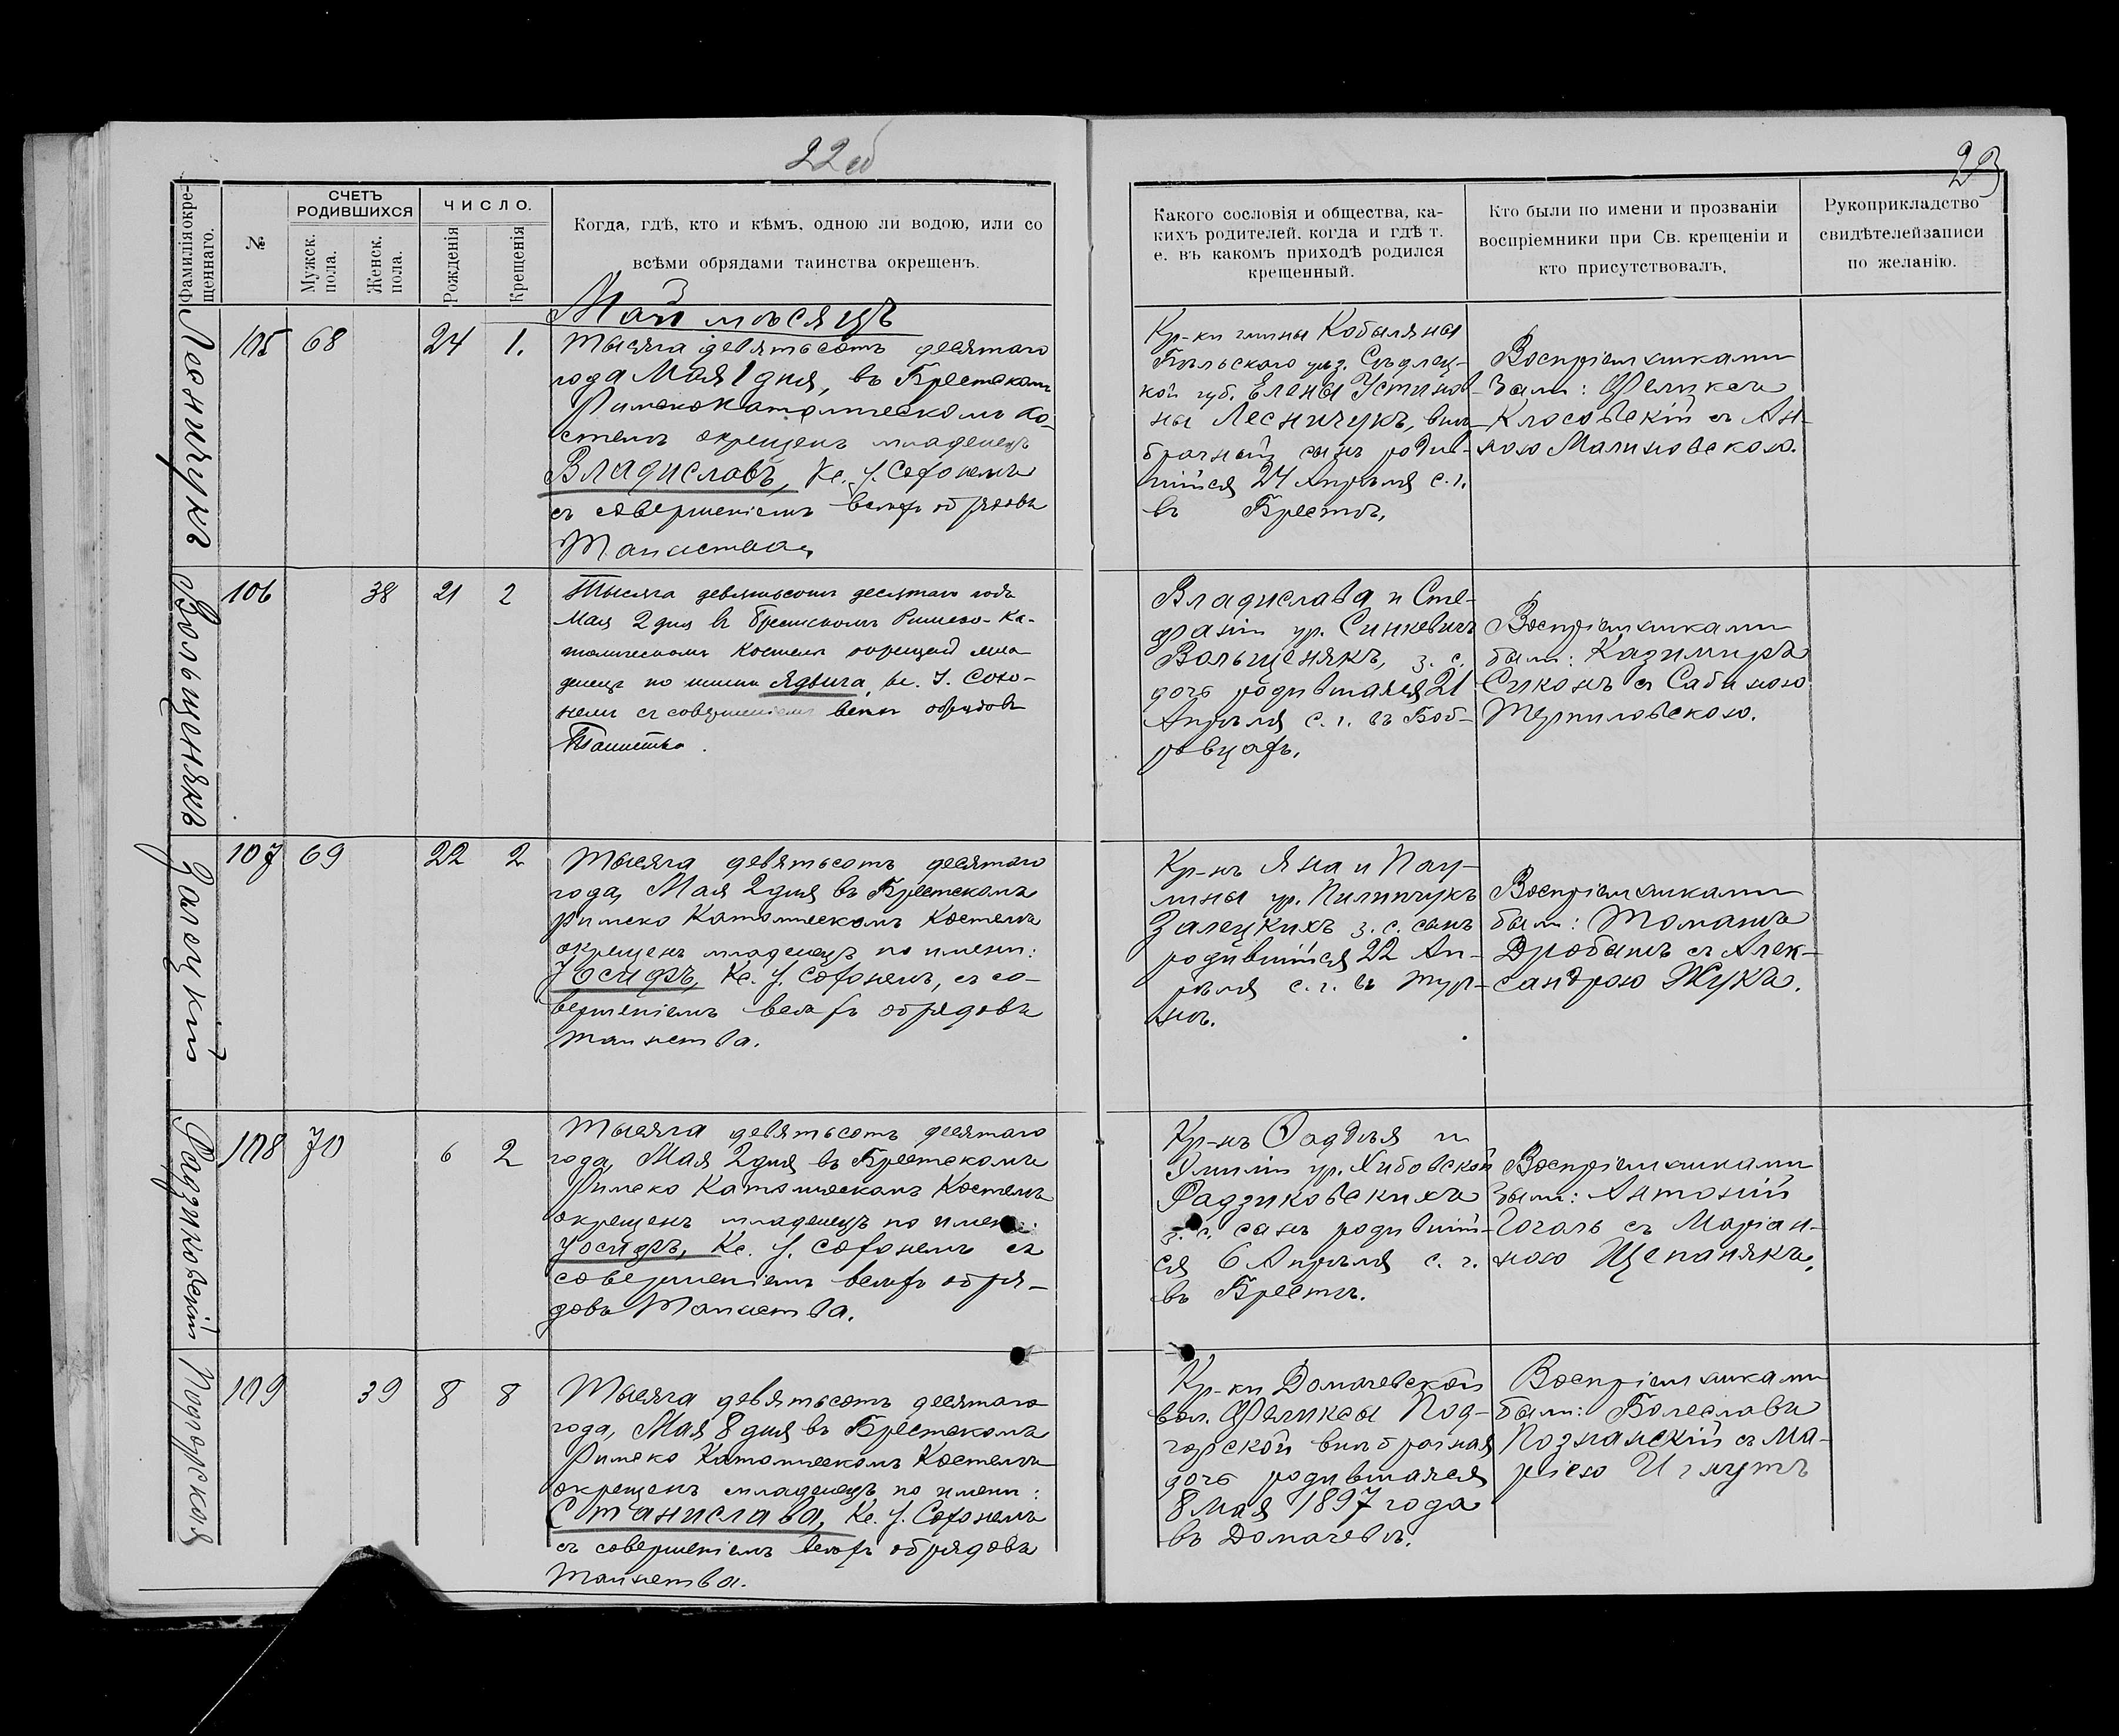 22 об
23
Фамилія окре-
щеннаго.
№
СЧЕТЪ
РОДИВШИХСЯ
Мужск.
пола.
Женск.
пола.
ЧИСЛО.
Рожденія
Крещенія
Когда, гдѣ, кто и кѣмъ, одною ли водою, или со
всѣми обрядами таинства окрещенъ.
Какого сословія и общества, ка-
кихъ родителей, когда и гдѣ т.
е. въ какомъ приходѣ родился
крещенный.
Кто были по имени и прозванію
воспріемники при Св. крещеніи и
кто присутствовалъ.
Рукоприкладство
свидѣтелей записи
по желанію.
Май мѣсяцъ
Лесничукъ
105 68 24 1.
Тысяча девятьсотъ десятаго
года Мая 1 дня, въ Брестскомъ
Римскокатолическомъ Ко-
стелѣ окрещенъ младенецъ
Владиславъ, Кс. І. Сохонемъ
съ совершеніемъ всѣхъ обрядовъ
Таинства,
Кр-ки гмины Кобыляны
Бѣльскаго уѣз. Сѣдлец-
кой губ. Елены Устинов-
ны Лесничукъ, внѣ-
брачный сынъ родив-
шійся 24 Апрѣля с. г.
въ Брестѣ,
Воспріемниками
были: Феликсъ
Класовскій съ Ан-
ною Малиновскою.
Вольщенякъ
106 38 21 2
Тысяча девятьсотъ десятаго года
Мая 2 дня въ Брестскомъ Римско-Ка-
толическомъ Костелѣ окрещена мла-
денецъ по имени Ядвига, кс. І. Сохо-
немъ съ совершеніемъ всѣхъ обрядовъ
Таинства.
Владислава и Сте-
фаніи ур. Синкевичъ
Вольщенякъ, з. с.
дочь родившаяся 21
Апрѣля с. г. въ Боб-
ровцахъ.
Воспріемниками
были: Казимиръ
Сиконъ съ Сабиною
Терпиловскою.
Залецкій
107 69 22 2
Тысяча девятьсотъ десятаго
года, Мая 2 дня въ Брестскомъ
Римско Католическомъ Костелѣ
окрещенъ младенецъ по имени:
Іосифъ, Кс. І. Сохонемъ, съ со-
вершеніемъ всѣхъ обрядовъ
таинства.
Кр-нъ Яна и Пау-
лины ур. Пилипчукъ
Залецкихъ з. с. сынъ
родившійся 22 Ап-
рѣля с. г. въ Тур-
нѣ.
Воспріемниками
были: Томашъ
Дробышъ съ Алек-
сандрою Жукъ.
Радзиковскій
108 70 6 2
Тысяча девятьсотъ десятаго
года, Мая 2 дня въ Брестскомъ
Римско Католическомъ Костелѣ
окрещенъ младенецъ по имени:
Іосифъ, Кс. І. Сохонемъ съ
совершеніемъ всѣхъ обря-
довъ Таинства.
Кр-нъ Фаддѣя и
Эмиліи ур. Хибовской
Радзиковскихъ
з. с. сынъ родившій-
ся 6 Апрѣля с. г.
въ Брестѣ.
Воспріемниками
были: Антоній
Гоголь съ Маріан-
ною Щепанякъ,
Подгорская
109 39 8 8
Тысяча девятьсотъ десятаго
года, Мая 8 дня въ Брестскомъ
Римско Католическомъ Костелѣ
окрещенъ младенецъ по имени:
Станислава, Кс. І. Сохонемъ
съ совершеніемъ всѣхъ обрядовъ
таинства.
Кр-ки Домачевской
вол. Феликсы Под-
горской внѣбрачная
дочь родившаяся
8 мая 1897 года
въ Домачевѣ.
Воспріемниками
были: Болеславъ
Познанскій съ Ма-
ріею Игнутъ